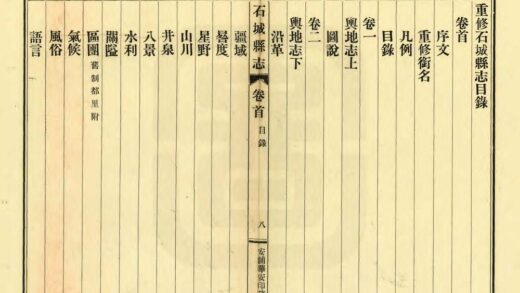 重修石城縣志目錄
卷首
序文
重修銜名
凡例
目錄
卷一
輿地志上
圖說
卷二
輿地志下
沿革
石城縣志
卷首
目錄
八
安鋪華安印
疆域
晷度
星野
山川
井泉
八景
水利
關隘
區團 舊制都里附
氣候
風俗
語言